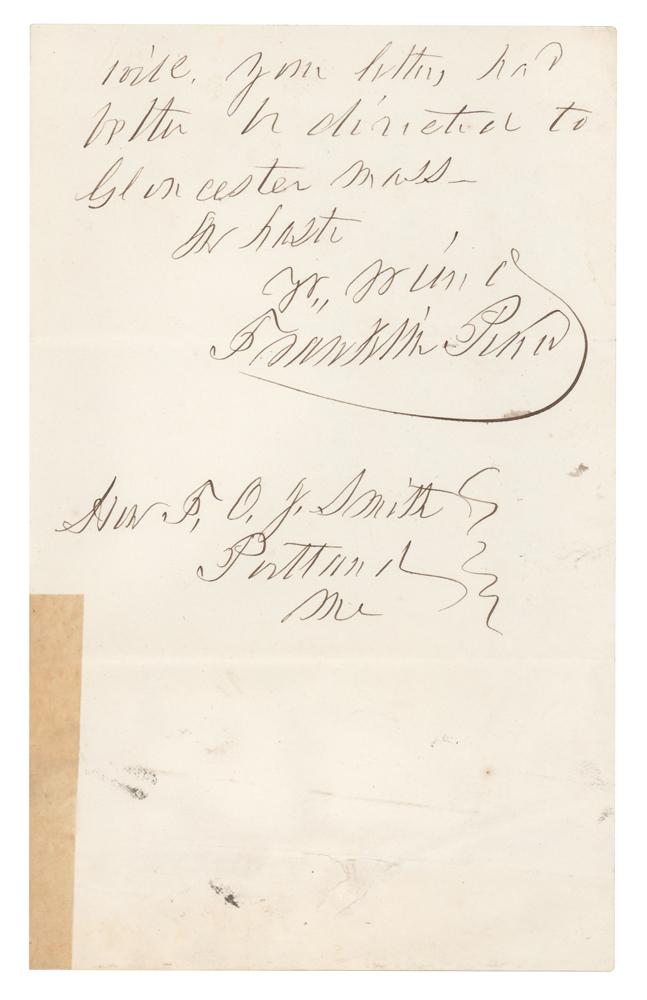 wise. Your letters had
better be directed to
Gloucester Mass—
In haste
Yr,, friend
Franklin Pierce
Hon F. O. J. Smith
Portland
Me